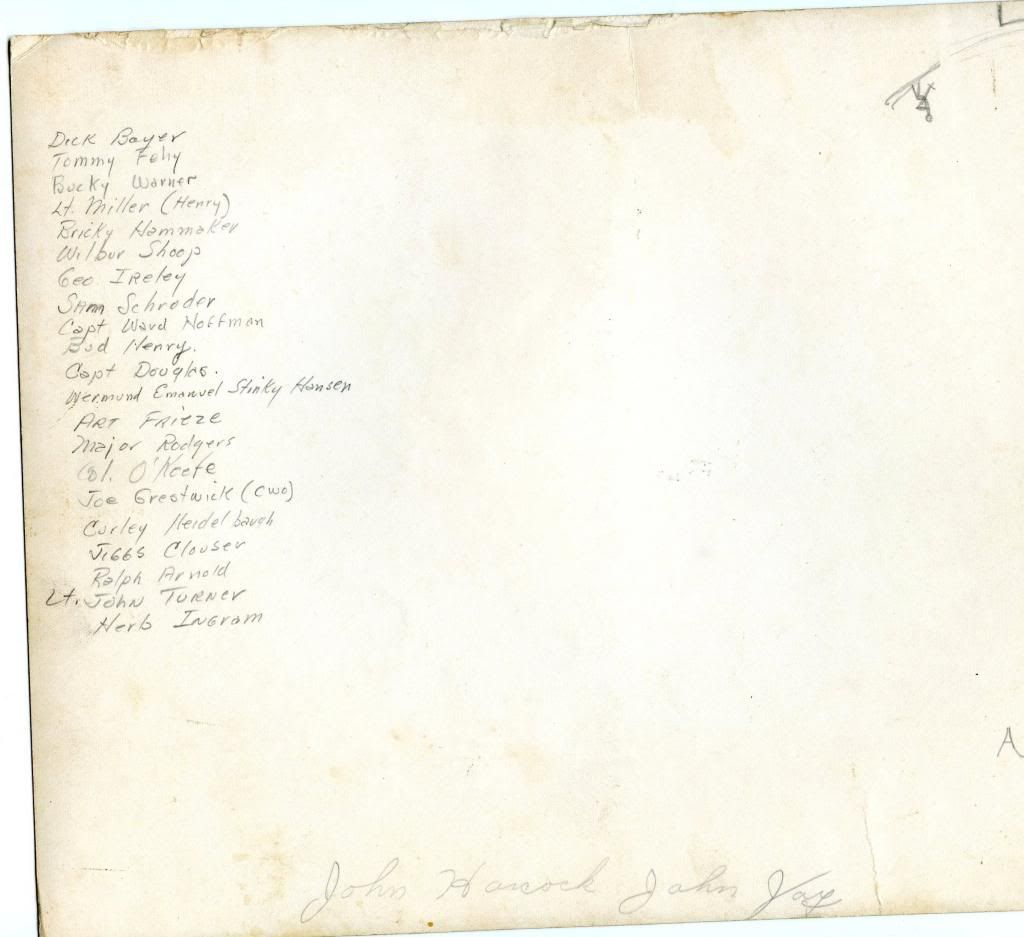 Dick Boyer
Tommy Fehy
Bucky Warner
Lt. Miller (Henry)
Bricky Hammaker
Wilbur Shoop
Geo Ireley
Sam Schroder
Capt Ward Hoffman
Bud Henry.
Capt Douglas.
Wermund Emanuel Stinky Hansen
ART FRIEZE
Major Rodgers
Col. O'Keefe
Joe Grestwick (CWO)
Curley Heidelbaugh
JIGGS Clouser
Ralph Arnold
Lt. JOHN TURNER
Herb INGram
John Hancock John
A